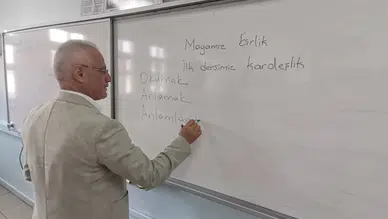 Mayamız birlik
İlk dersimiz kardeşlik
Okumak
Anlamak
Anlamla